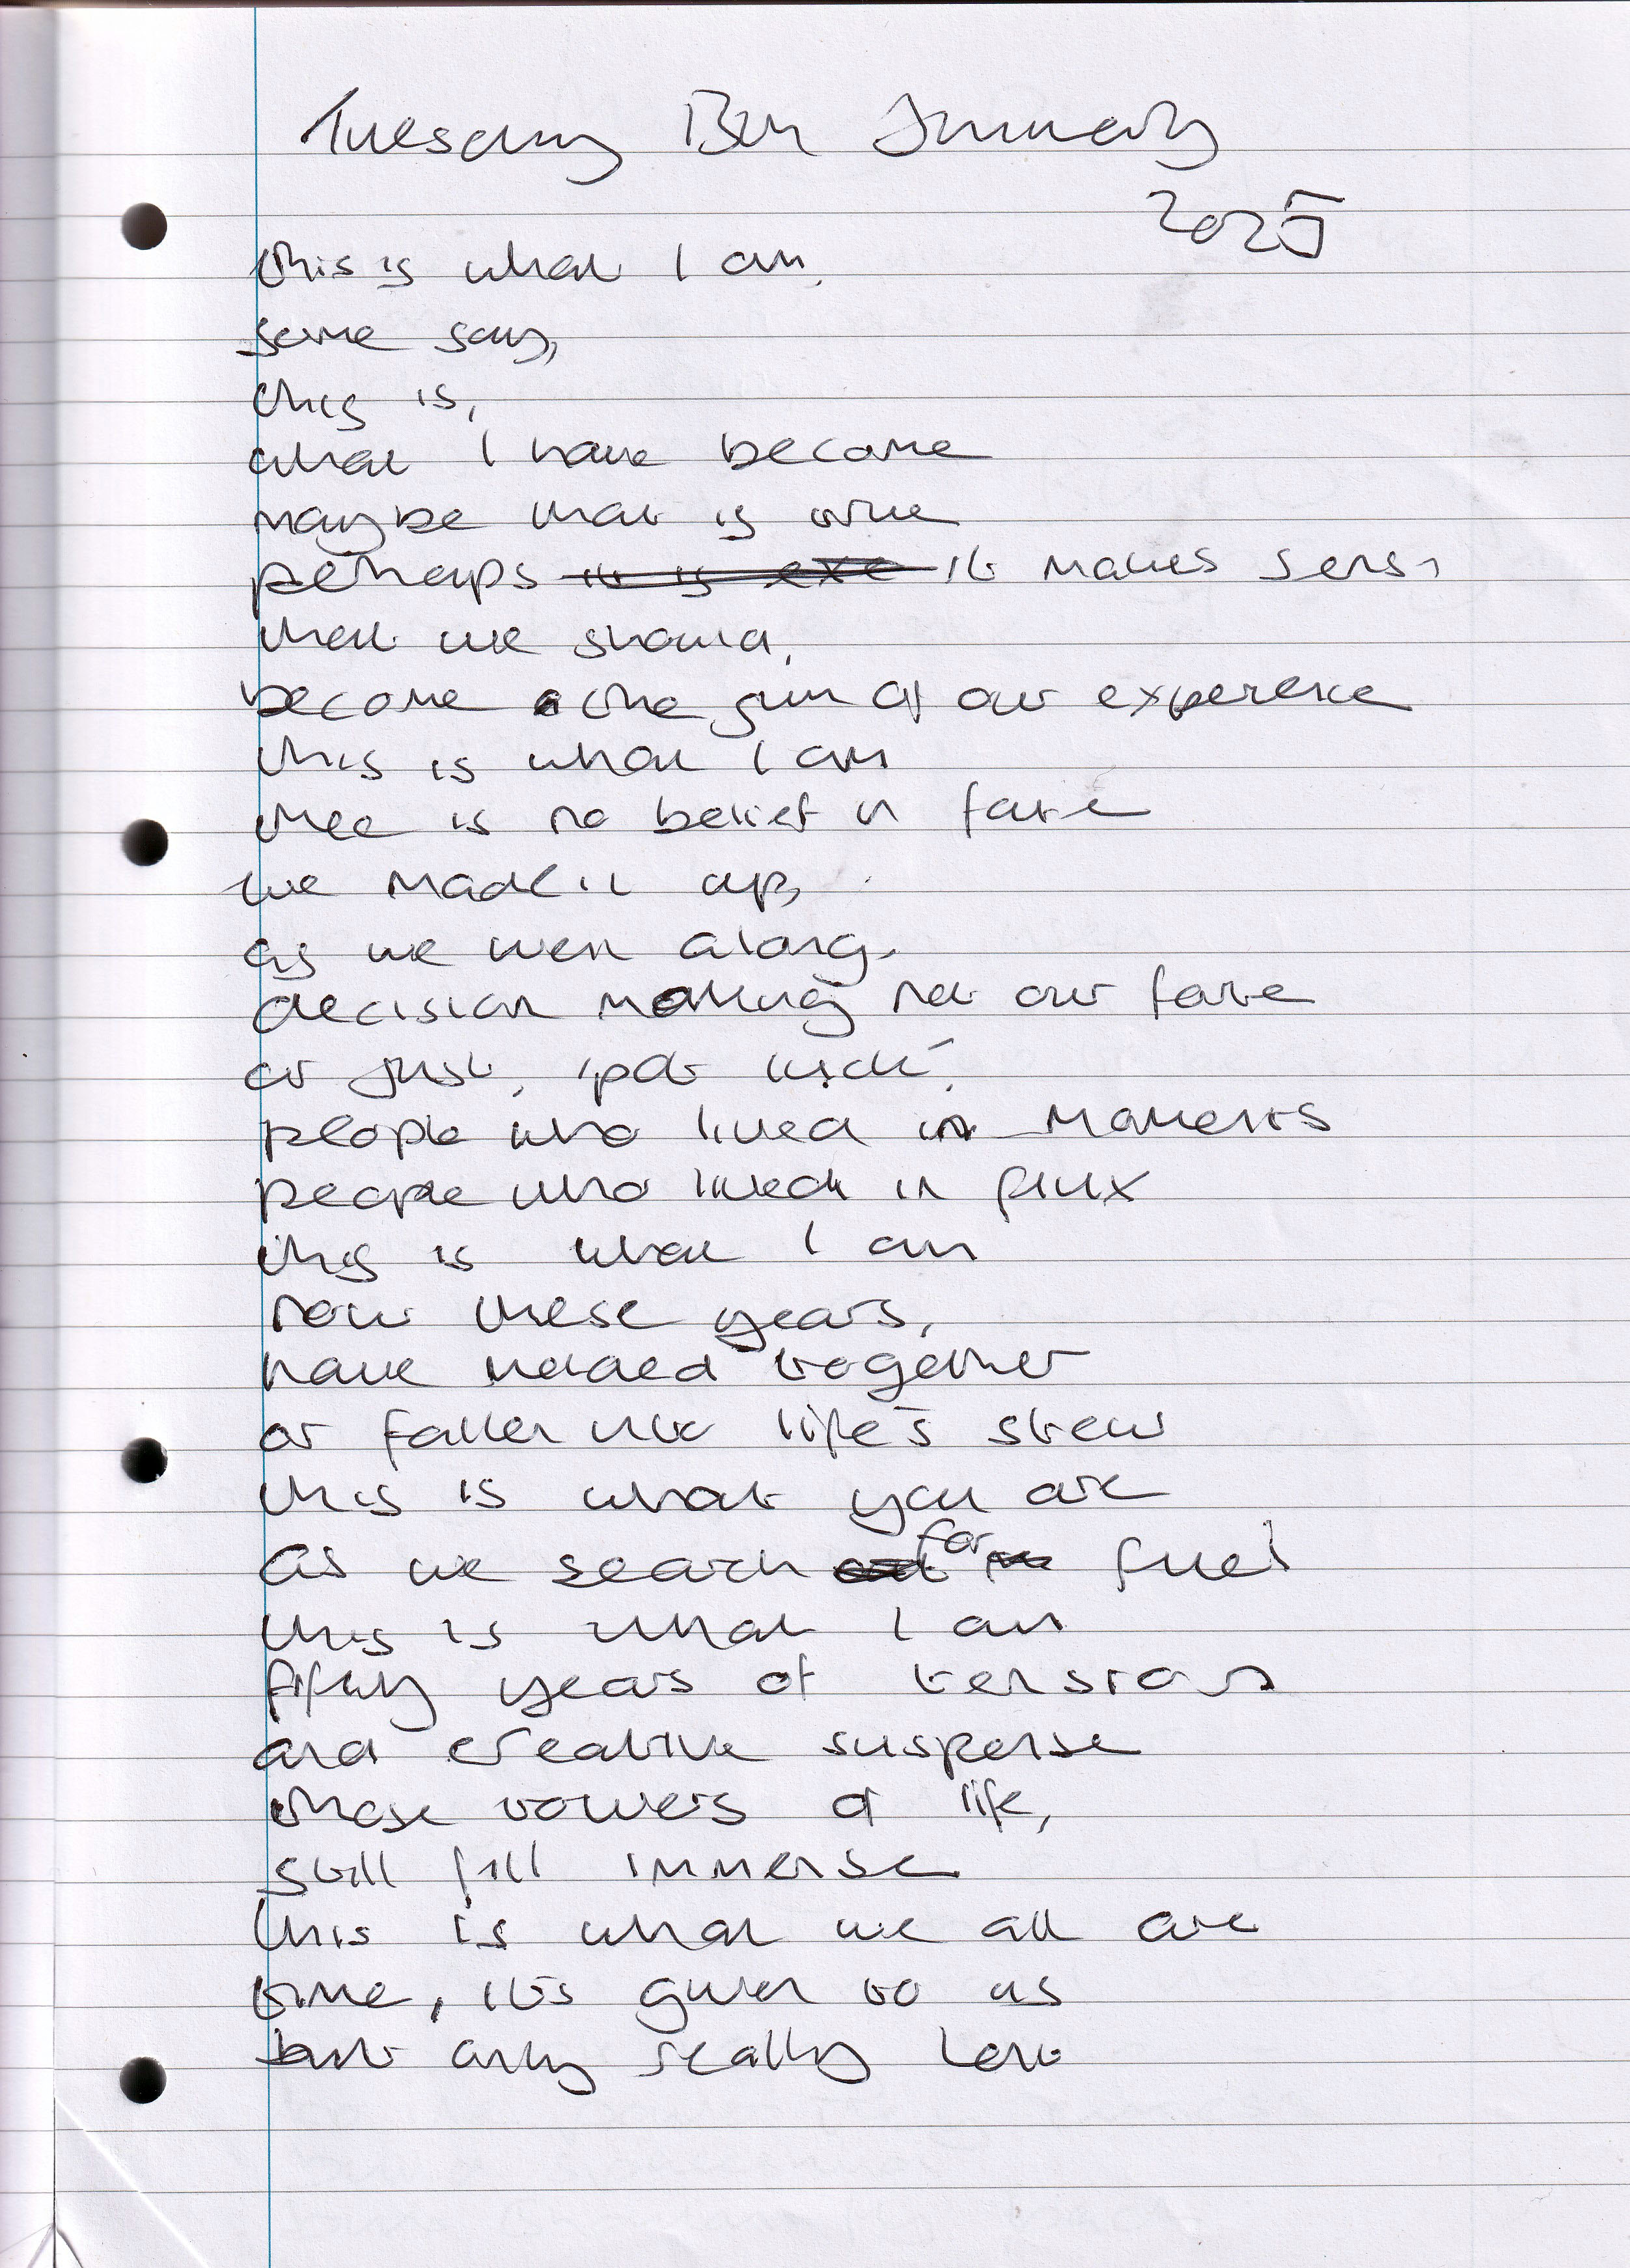 Tuesday 13th January
2025
this is what I am,
some say,
this is,
what I have become
maybe that is true
perhaps it is exe it makes sense
that we should,
become the sum of our experience
this is what I am
there is no belief in fate
we made it up,
as we went along.
decision making not our fate
or just, 'pot luck'.
people who lived in moments
people who lived in flux
this is what I am
now these years,
have melded together
or fallen into life's stew
this is what you are
as we search for fuel
this is what I am
fifty years of tension
and creative suspense
those towers of life,
still fill immense
this is what we all are
time, it's given to us
but only really lent